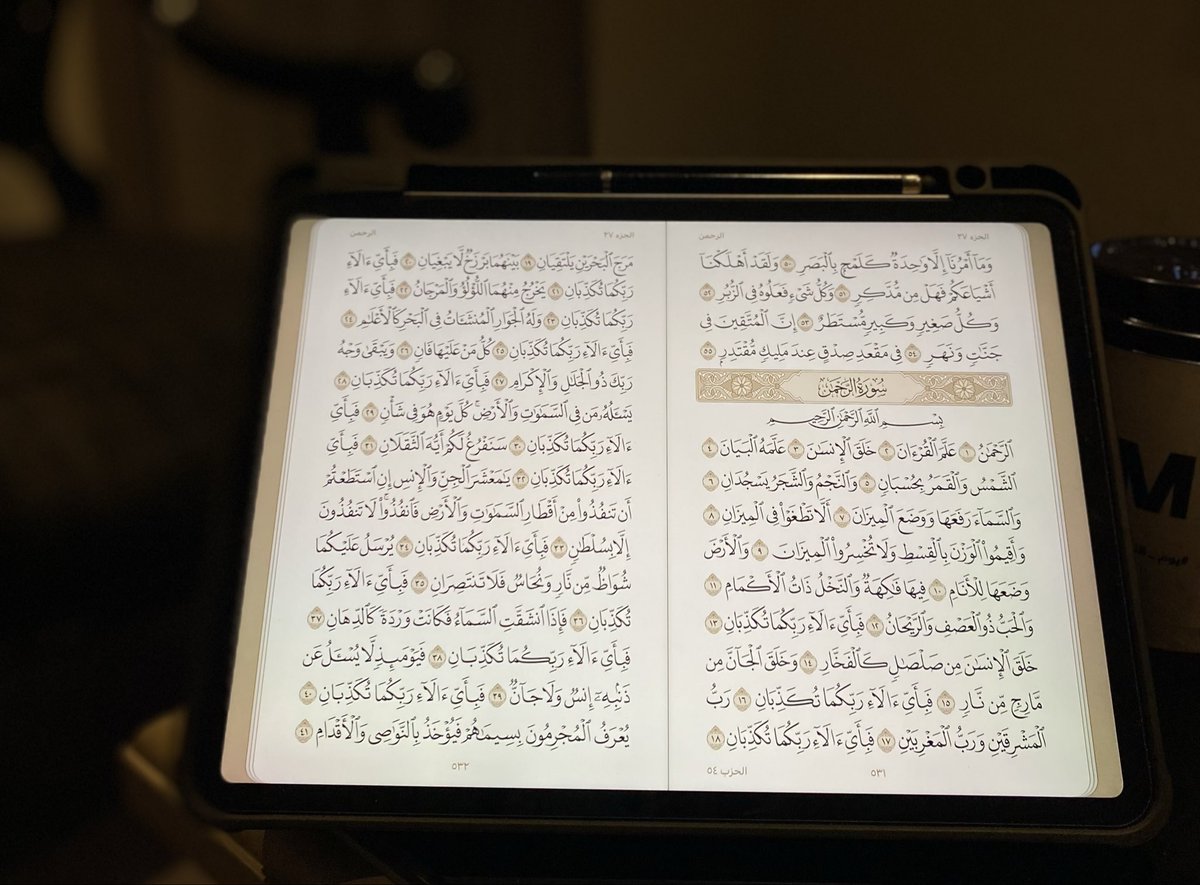 الجزء ٢٧
الرحمن
وَمَآ أَمْرُنَآ إِلَّا وَٰحِدَةٌ كَلَمْحٍۭ بِٱلْبَصَرِ ٥٠ وَلَقَدْ أَهْلَكْنَآ
أَشْيَاعَكُمْ فَهَلْ مِن مُّدَّكِرٍ ٥١ وَكُلُّ شَىْءٍ فَعَلُوهُ فِى ٱلزُّبُرِ ٥٢
وَكُلُّ صَغِيرٍ وَكَبِيرٍ مُّسْتَطَرٌ ٥٣ إِنَّ ٱلْمُتَّقِينَ فِى
جَنَّٰتٍ وَنَهَرٍ ٥٤ فِى مَقْعَدِ صِدْقٍ عِندَ مَلِيكٍ مُّقْتَدِرٍۭ ٥٥
سُورَةُ الرَّحْمَٰن
بِسْمِ ٱللَّهِ ٱلرَّحْمَٰنِ ٱلرَّحِيمِ
ٱلرَّحْمَٰنُ ١ عَلَّمَ ٱلْقُرْءَانَ ٢ خَلَقَ ٱلْإِنسَٰنَ ٣ عَلَّمَهُ ٱلْبَيَانَ ٤
ٱلشَّمْسُ وَٱلْقَمَرُ بِحُسْبَانٍ ٥ وَٱلنَّجْمُ وَٱلشَّجَرُ يَسْجُدَانِ ٦
وَٱلسَّمَآءَ رَفَعَهَا وَوَضَعَ ٱلْمِيزَانَ ٧ أَلَّا تَطْغَوْا۟ فِى ٱلْمِيزَانِ ٨
وَأَقِيمُوا۟ ٱلْوَزْنَ بِٱلْقِسْطِ وَلَا تُخْسِرُوا۟ ٱلْمِيزَانَ ٩ وَٱلْأَرْضَ
وَضَعَهَا لِلْأَنَامِ ١٠ فِيهَا فَٰكِهَةٌ وَٱلنَّخْلُ ذَاتُ ٱلْأَكْمَامِ ١١
وَٱلْحَبُّ ذُو ٱلْعَصْفِ وَٱلرَّيْحَانُ ١٢ فَبِأَىِّ ءَالَآءِ رَبِّكُمَا تُكَذِّبَانِ ١٣
خَلَقَ ٱلْإِنسَٰنَ مِن صَلْصَٰلٍ كَٱلْفَخَّارِ ١٤ وَخَلَقَ ٱلْجَآنَّ مِن
مَّارِجٍ مِّن نَّارٍ ١٥ فَبِأَىِّ ءَالَآءِ رَبِّكُمَا تُكَذِّبَانِ ١٦ رَبُّ
ٱلْمَشْرِقَيْنِ وَرَبُّ ٱلْمَغْرِبَيْنِ ١٧ فَبِأَىِّ ءَالَآءِ رَبِّكُمَا تُكَذِّبَانِ ١٨
٥٣١
الحزب ٥٤
الجزء ٢٧
الرحمن
مَرَجَ ٱلْبَحْرَيْنِ يَلْتَقِيَانِ ١٩ بَيْنَهُمَا بَرْزَخٌ لَّا يَبْغِيَانِ ٢٠ فَبِأَىِّ ءَالَآءِ
رَبِّكُمَا تُكَذِّبَانِ ٢١ يَخْرُجُ مِنْهُمَا ٱللُّؤْلُؤُ وَٱلْمَرْجَانُ ٢٢ فَبِأَىِّ ءَالَآءِ
رَبِّكُمَا تُكَذِّبَانِ ٢٣ وَلَهُ ٱلْجَوَارِ ٱلْمُنشَـَٔاتُ فِى ٱلْبَحْرِ كَٱلْأَعْلَٰمِ ٢٤
فَبِأَىِّ ءَالَآءِ رَبِّكُمَا تُكَذِّبَانِ ٢٥ كُلُّ مَنْ عَلَيْهَا فَانٍ ٢٦ وَيَبْقَىٰ وَجْهُ
رَبِّكَ ذُو ٱلْجَلَٰلِ وَٱلْإِكْرَامِ ٢٧ فَبِأَىِّ ءَالَآءِ رَبِّكُمَا تُكَذِّبَانِ ٢٨
يَسْـَٔلُهُۥ مَن فِى ٱلسَّمَٰوَٰتِ وَٱلْأَرْضِ ۚ كُلَّ يَوْمٍ هُوَ فِى شَأْنٍ ٢٩ فَبِأَىِّ
ءَالَآءِ رَبِّكُمَا تُكَذِّبَانِ ٣٠ سَنَفْرُغُ لَكُمْ أَيُّهَ ٱلثَّقَلَانِ ٣١ فَبِأَىِّ
ءَالَآءِ رَبِّكُمَا تُكَذِّبَانِ ٣٢ يَٰمَعْشَرَ ٱلْجِنِّ وَٱلْإِنسِ إِنِ ٱسْتَطَعْتُمْ
أَن تَنفُذُوا۟ مِنْ أَقْطَارِ ٱلسَّمَٰوَٰتِ وَٱلْأَرْضِ فَٱنفُذُوا۟ ۚ لَا تَنفُذُونَ
إِلَّا بِسُلْطَٰنٍ ٣٣ فَبِأَىِّ ءَالَآءِ رَبِّكُمَا تُكَذِّبَانِ ٣٤ يُرْسَلُ عَلَيْكُمَا
شُوَاظٌ مِّن نَّارٍ وَنُحَاسٌ فَلَا تَنتَصِرَانِ ٣٥ فَبِأَىِّ ءَالَآءِ رَبِّكُمَا
تُكَذِّبَانِ ٣٦ فَإِذَا ٱنشَقَّتِ ٱلسَّمَآءُ فَكَانَتْ وَرْدَةً كَٱلدِّهَانِ ٣٧
فَبِأَىِّ ءَالَآءِ رَبِّكُمَا تُكَذِّبَانِ ٣٨ فَيَوْمَئِذٍ لَّا يُسْـَٔلُ عَن
ذَنۢبِهِۦٓ إِنسٌ وَلَا جَآنٌّ ٣٩ فَبِأَىِّ ءَالَآءِ رَبِّكُمَا تُكَذِّبَانِ ٤٠
يُعْرَفُ ٱلْمُجْرِمُونَ بِسِيمَٰهُمْ فَيُؤْخَذُ بِٱلنَّوَٰصِى وَٱلْأَقْدَامِ ٤١
٥٣٢
M